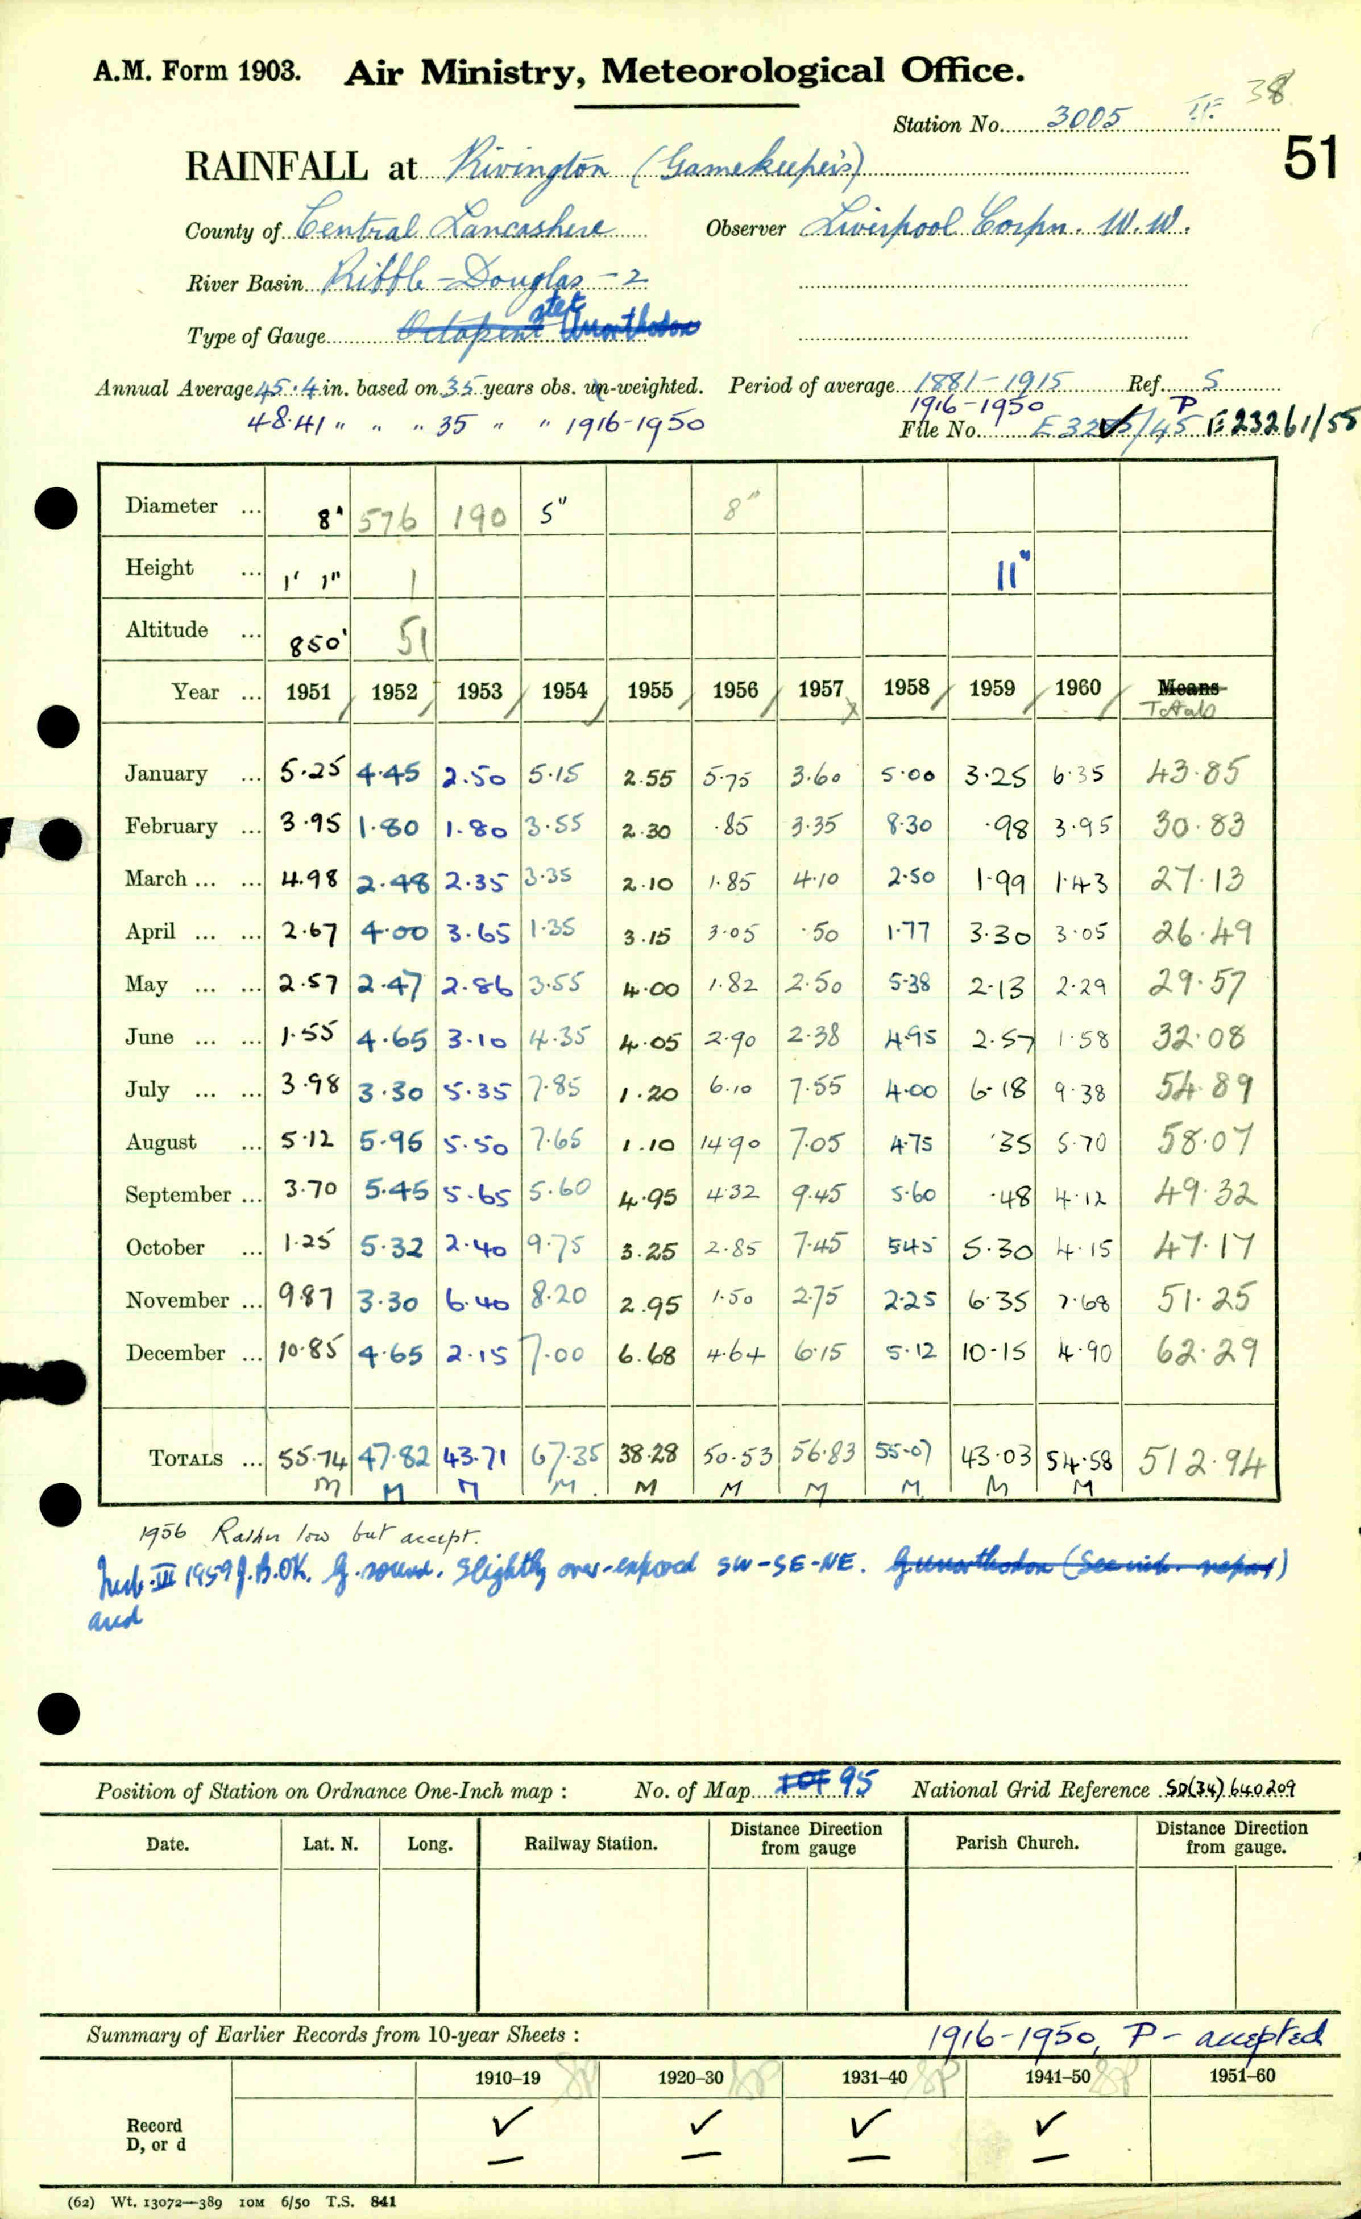 A.M. Form 1903. Air Ministry, Meteorological Office.
38
Station No. 3005
51
RAINFALL at Rivington (Gamekeeper's)
County of Central Lancashire Observer Liverpool Corpn. W.W.
River Basin Ribble - Douglas - 2
Type of Gauge Octapent stet Unorthodox
Annual Average 45.4 in. based on 35 years obs. un-weighted. Period of average 1881-1915 Ref. S
48.41 " " " 35 " " 1916-1950 1916-1950 P
File No. E 3205/45 E 23261/55
Diameter ... 8" 576 190 5" 8"
Height ... 1' 1" 1 11"
Altitude ... 850' 51
Year ... 1951 1952 1953 1954 1955 1956 1957 1958 1959 1960 Means
Totals
January ... 5.25 4.45 2.50 5.15 2.55 5.75 3.60 5.00 3.25 6.35 43.85
February ... 3.95 1.80 1.80 3.55 2.30 .85 3.35 8.30 .98 3.95 30.83
March ... ... 4.98 2.48 2.35 3.35 2.10 1.85 4.10 2.50 1.99 1.43 27.13
April ... ... 2.67 4.00 3.65 1.35 3.15 3.05 .50 1.77 3.30 3.05 26.49
May ... ... 2.57 2.47 2.86 3.55 4.00 1.82 2.50 5.38 2.13 2.29 29.57
June ... ... 1.55 4.65 3.10 4.35 4.05 2.90 2.38 4.95 2.57 1.58 32.08
July ... ... 3.98 3.30 5.35 7.85 1.20 6.10 7.55 4.00 6.18 9.38 54.89
August ... 5.12 5.95 5.50 7.65 1.10 14.90 7.05 4.75 .35 5.70 58.07
September ... 3.70 5.45 5.65 5.60 4.95 4.32 9.45 5.60 .48 4.12 49.32
October ... 1.25 5.32 2.40 9.75 3.25 2.85 7.45 5.45 5.30 4.15 47.17
November ... 9.87 3.30 6.40 8.20 2.95 1.50 2.75 2.25 6.35 7.68 51.25
December ... 10.85 4.65 2.15 7.00 6.68 4.64 6.15 5.12 10.15 4.90 62.29
TOTALS ... 55.74 47.82 43.71 67.35 38.28 50.53 56.83 55.07 43.03 54.58 512.94
M M M M M M M M M M
1956 Rather low but accept.
Insp. III 1959 J.B. OK. G. sound. Slightly over-exposed SW-SE-NE. G unorthodox (See insp. report)
and
Position of Station on Ordnance One-Inch map : No. of Map 95 National Grid Reference SD(34) 640209
Date. Lat. N. Long. Railway Station. Distance Direction from gauge Parish Church. Distance Direction from gauge.
Summary of Earlier Records from 10-year Sheets : 1916-1950, P - accepted
1910–19 1920–30 1931–40 1941–50 1951–60
Record
D, or d
(62) Wt. 13072—389 10M 6/50 T.S. 841